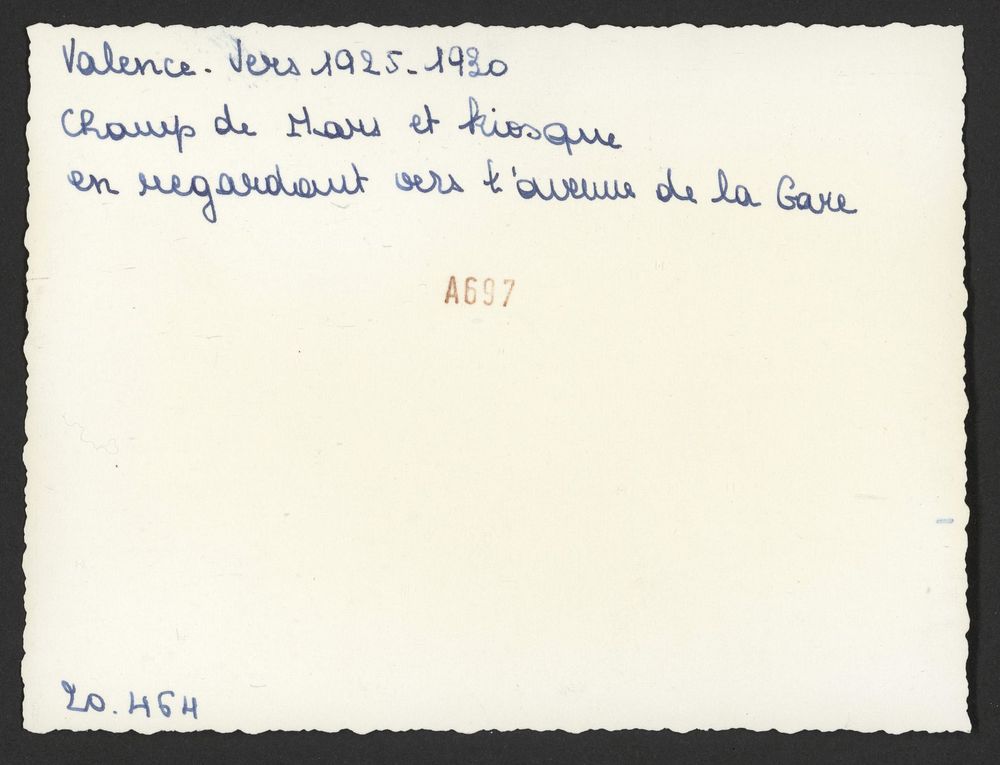 Valence. Vers 1925-1930
Champ de Mars et kiosque
en regardant vers l'avenue de la Gare
A697
20.464